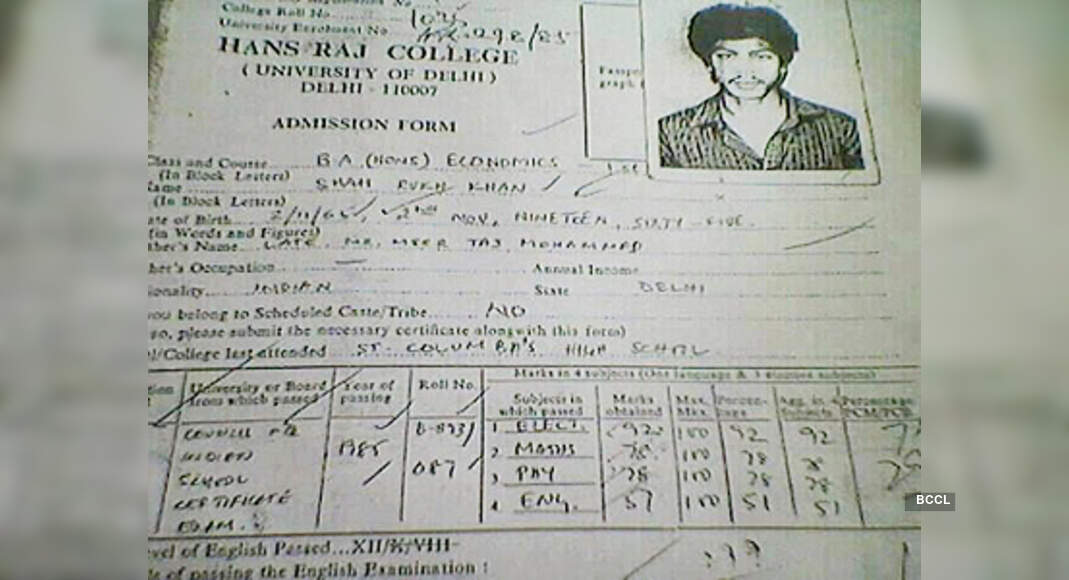 College Roll No
University Enrolment No
298/85
HANS RAJ COLLEGE
( UNIVERSITY OF DELHI )
DELHI - 110007
ADMISSION FORM
Class and Course B.A. (HONS) ECONOMICS
(In Block Letters)
SHAH RUKH KHAN
(In Block Letters)
ate of Birth 2/11/65, 2nd NOV, NINETEEN, SIXTY-FIVE.
(in Words and Figures)
her's Name LATE. MR. MEER TAJ MOHAMMED
her's Occupation Annual Income
ionality INDIAN State DELHI
you belong to Scheduled Caste/Tribe NO
so, please submit the necessary certificate alongwith this form)
l/College last attended ST. COLUMBA'S HIGH SCHOOL
Marks in 4 subjects (One language & 3 elective subjects)
University or Board from which passed Year of passing Roll No. Subjects in which passed Marks obtained Max. Max. Percen- tage Agg. in 4 Subjects Percentage PCM/PCB
COUNCIL FOR INDIAN SCHOOL CERTIFICATE EXAM. 1985 B-893/ 087
1. ELECT. 92 100 92 92
2. MATHS 78 100 78 78
3. PHY 78 100 78 78
4. ENG. 51 100 51 51
evel of English Passed...XII/X/VIII
of passing the English Examination :
BCCL